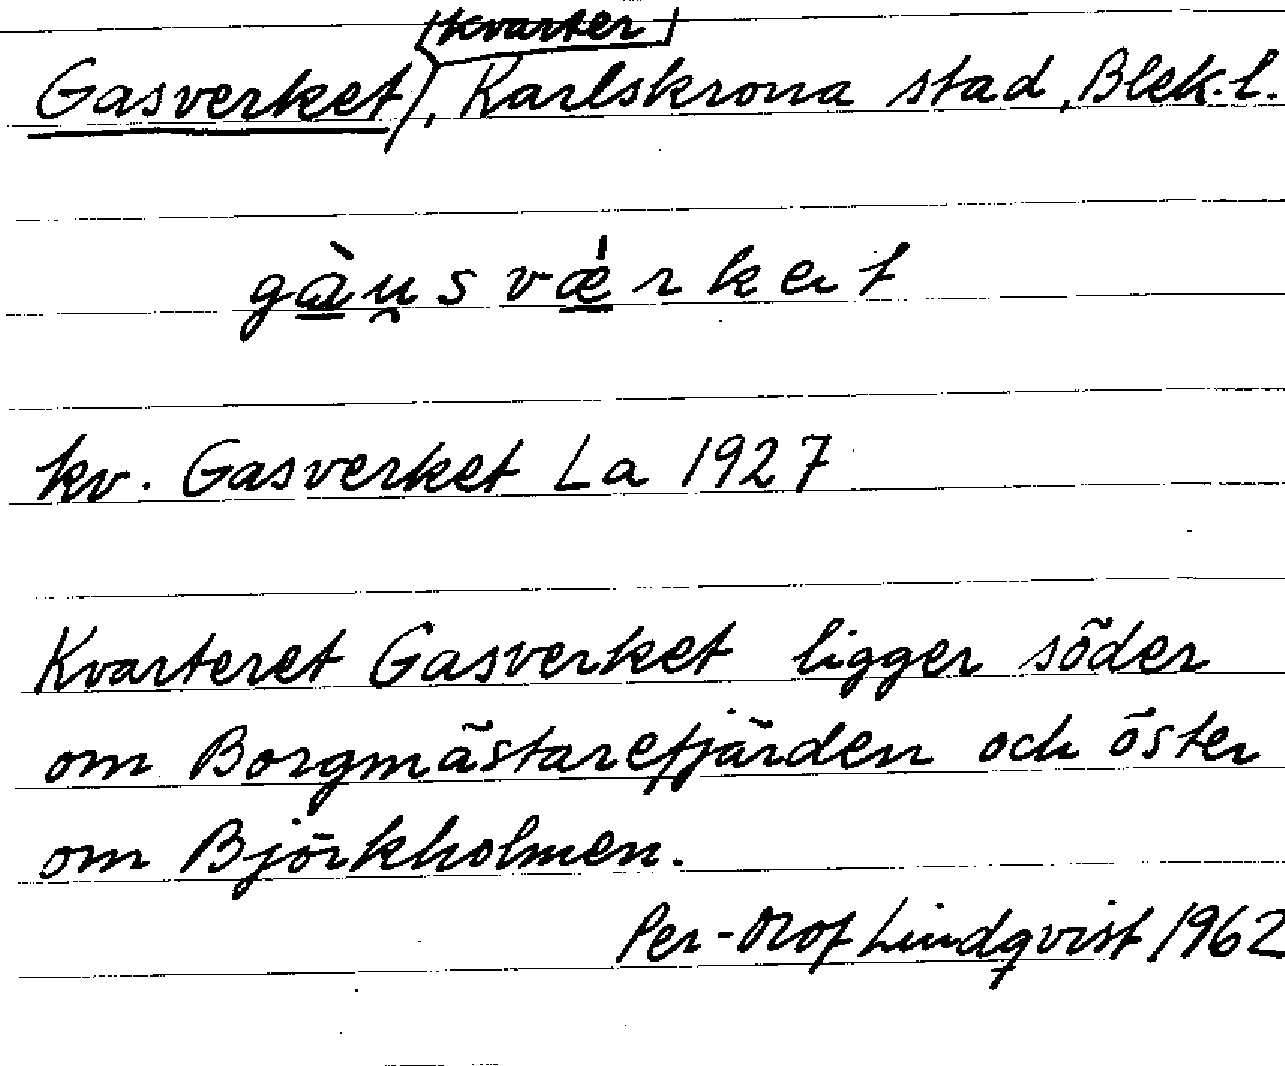 kvarter
Gasverket, Karlskrona stad, Blek. l.
gàu̯svǽrkət
kv. Gasverket La 1927
Kvarteret Gasverket ligger söder
om Borgmästarefjärden och öster
om Björkholmen.
Per-Olof Lindqvist 1962